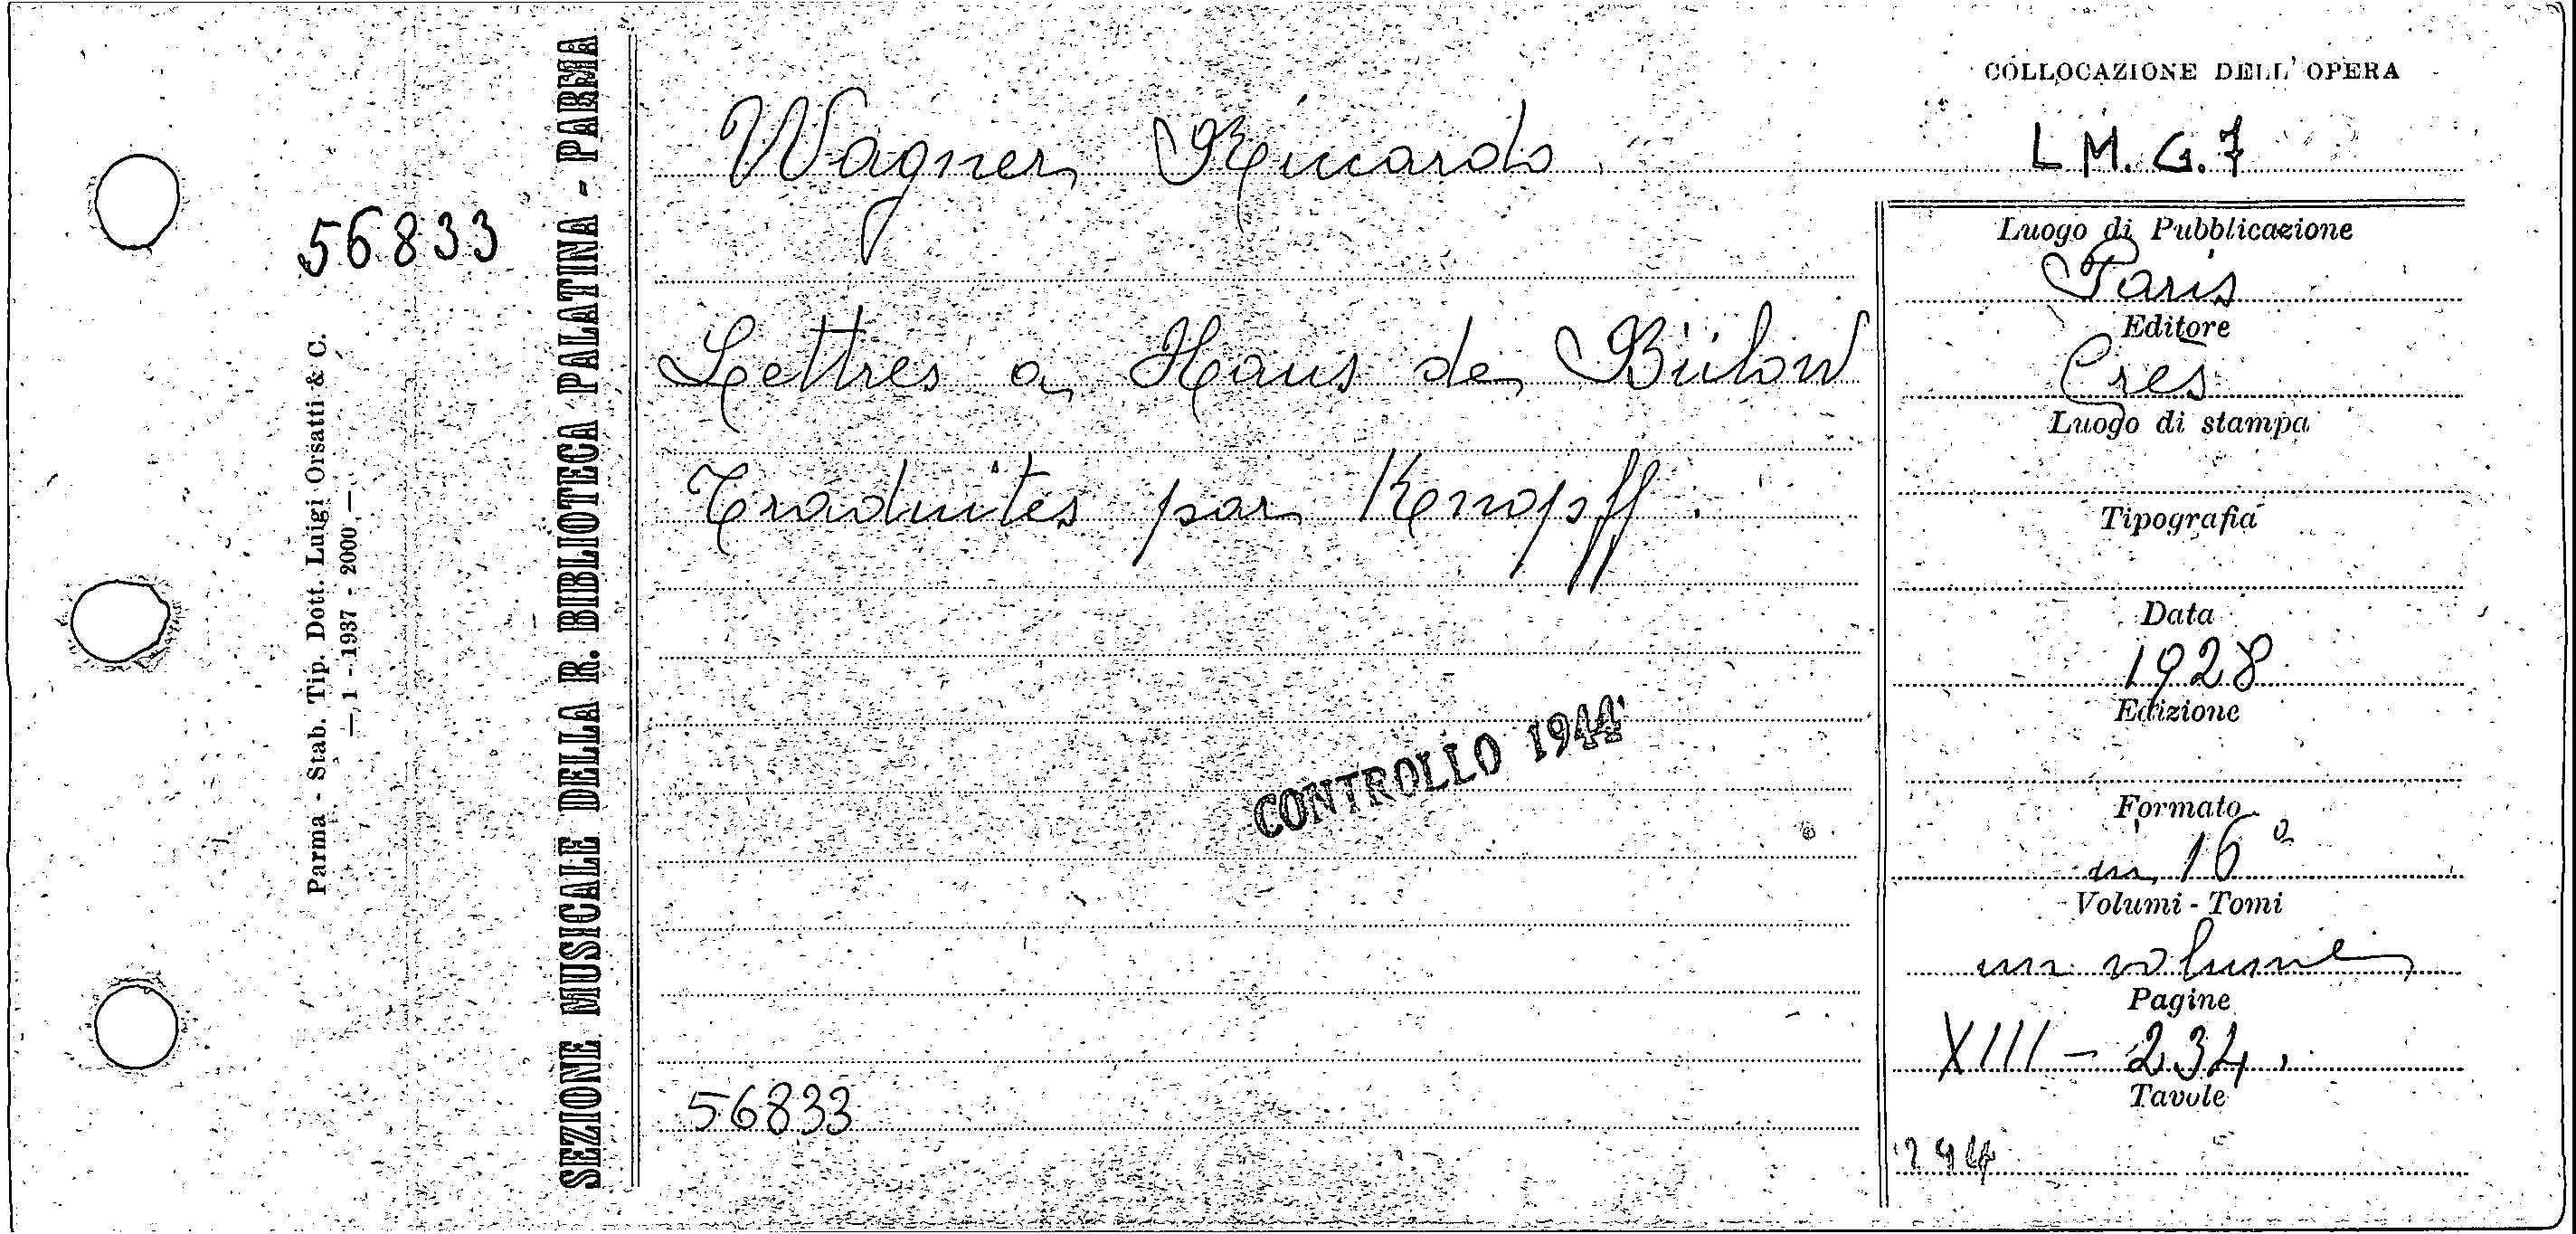 COLLOCAZIONE DELL' OPERA
Wagner Riccardo
L M. G. 7
56833
SEZIONE MUSICALE DELLA R. BIBLIOTECA PALATINA - PARMA
Parma - Stab. Tip. Dott. Luigi Orsatti & C.
— 1 - 1937 - 2000,—
Lettres a Haus de Bülow
Traduites par Kenopff.
CONTROLLO 1944
56833
Luogo di Pubblicazione
Paris
Editore
Cres
Luogo di stampa
Tipografia
Data
1928
Edizione
Formato
in 16º
Volumi - Tomi
un volume
Pagine
XIII - 234.
Tavole